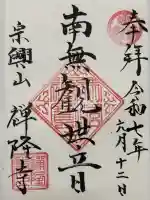 奉拝
令和七年
六月十二日
南無観世音
宗興山
禅隆寺